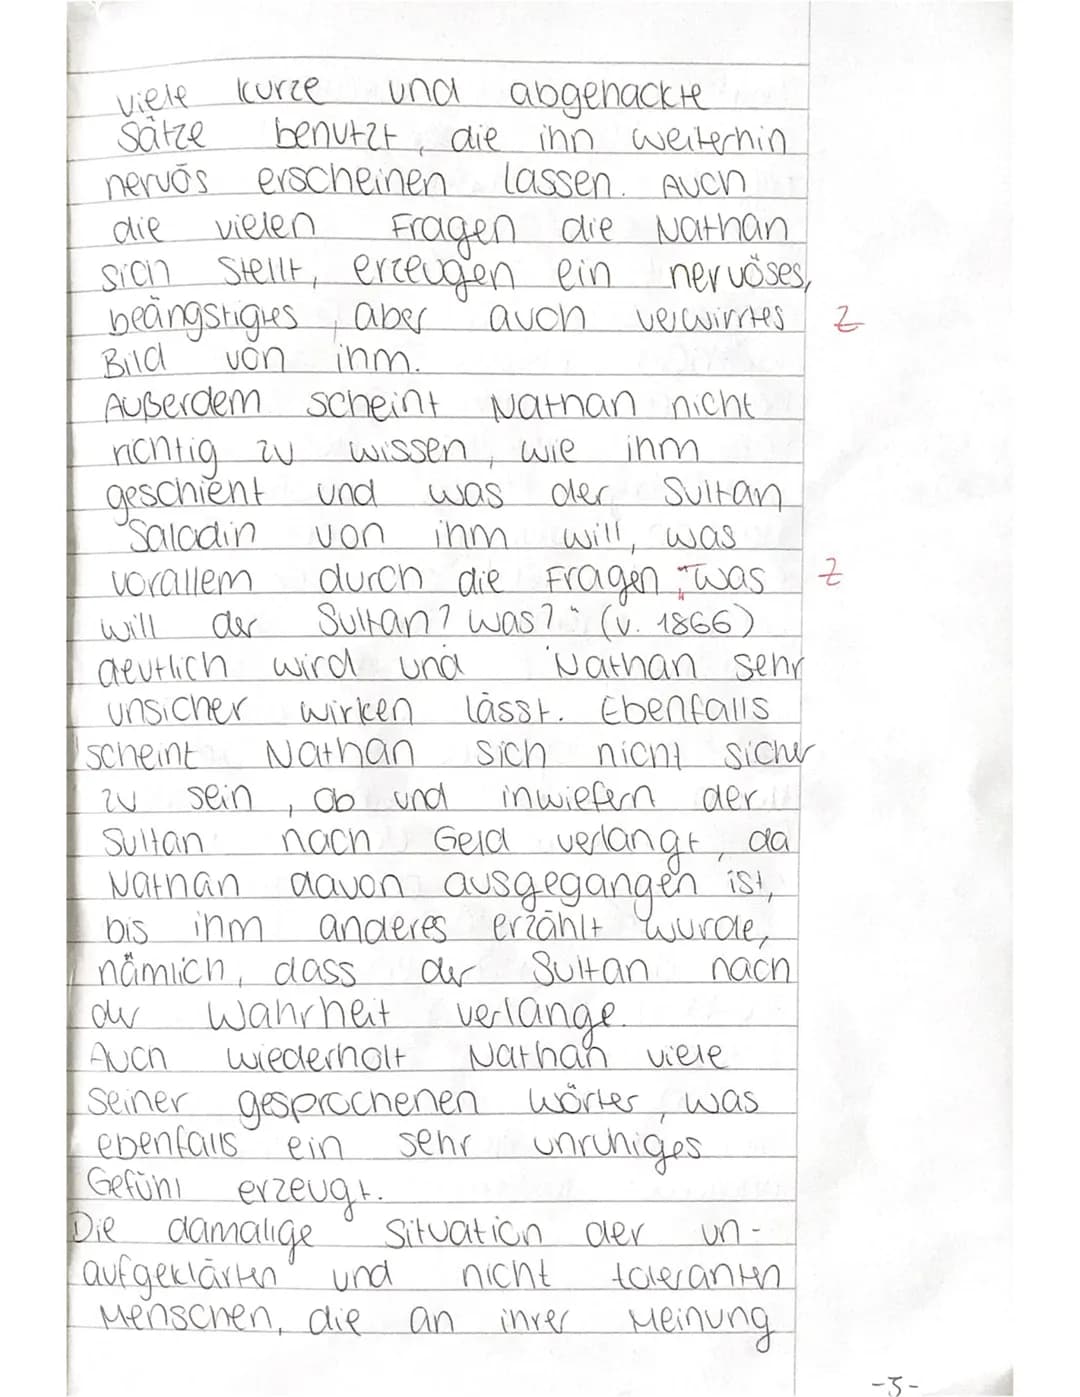 viele kurze und abgehackte
Sätze benutzt, die ihn weiterhin
nervös erscheinen lassen. Auch
die vielen Fragen die Nathan
sich stellt, erzeugen ein nervöses,
beängstigtes, aber auch verwirrtes Z
Bild von ihm.
Außerdem scheint Nathan nicht
richtig zu wissen, wie ihm
geschieht und was der Sultan
Saladin von ihm will, was
vorallem durch die Fragen „was Z
will der Sultan? was?" (v. 1866)
deutlich wird und Nathan sehr
unsicher wirken lässt. Ebenfalls
scheint Nathan sich nicht sicher
zu sein, ob und inwiefern der
Sultan nach Geld verlangt, da
Nathan davon ausgegangen ist,
bis ihm anderes erzählt wurde,
nämlich, dass der Sultan nach
der Wahrheit verlange.
Auch wiederholt Nathan viele
seiner gesprochenen Wörter, was
ebenfalls ein sehr unruhiges
Gefühl erzeugt.
Die damalige Situation der un-
aufgeklärten und nicht toleranten
Menschen, die an ihrer Meinung
-3-